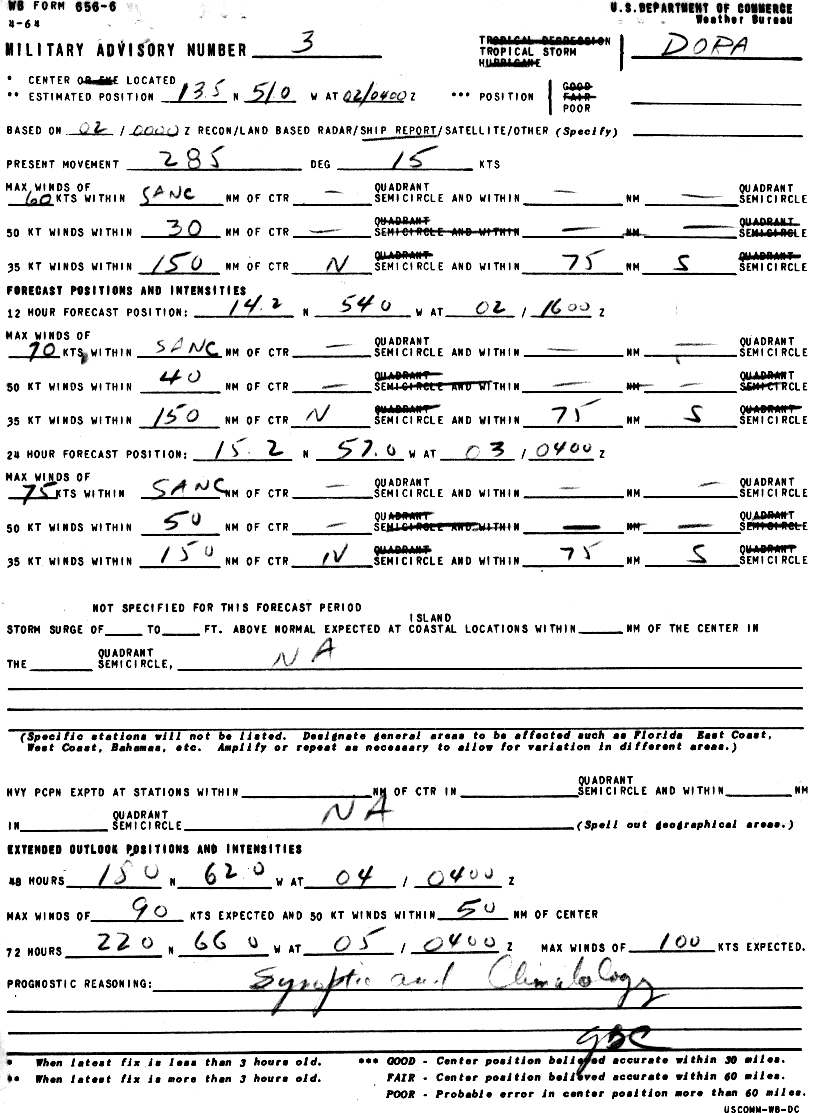 WB FORM 656-6 U.S. DEPARTMENT OF COMMERCE
4-64 Weather Bureau
MILITARY ADVISORY NUMBER 3 TROPICAL DEPRESSION DORA
TROPICAL STORM
HURRICANE
* CENTER OR EYE LOCATED
** ESTIMATED POSITION 13.5 N 510 W AT 02/0400 Z *** POSITION GOOD
FAIR
POOR
BASED ON 02 / 0000 Z RECON/LAND BASED RADAR/SHIP REPORT/SATELLITE/OTHER (Specify)
PRESENT MOVEMENT 285 DEG 15 KTS
MAX WINDS OF QUADRANT QUADRANT
60 KTS WITHIN SANC NM OF CTR — SEMICIRCLE AND WITHIN — NM — SEMICIRCLE
QUADRANT QUADRANT
50 KT WINDS WITHIN 30 NM OF CTR — SEMICIRCLE AND WITHIN — NM — SEMICIRCLE
QUADRANT QUADRANT
35 KT WINDS WITHIN 150 NM OF CTR N SEMICIRCLE AND WITHIN 75 NM S SEMICIRCLE
FORECAST POSITIONS AND INTENSITIES
12 HOUR FORECAST POSITION: 14.2 N 540 W AT 02 / 1600 Z
MAX WINDS OF QUADRANT QUADRANT
70 KTS WITHIN SANC NM OF CTR — SEMICIRCLE AND WITHIN — NM — SEMICIRCLE
QUADRANT QUADRANT
50 KT WINDS WITHIN 40 NM OF CTR — SEMICIRCLE AND WITHIN — NM — SEMICIRCLE
QUADRANT QUADRANT
35 KT WINDS WITHIN 150 NM OF CTR N SEMICIRCLE AND WITHIN 75 NM S SEMICIRCLE
24 HOUR FORECAST POSITION: 15.2 N 57.0 W AT 03 / 0400 Z
MAX WINDS OF QUADRANT QUADRANT
75 KTS WITHIN SANC NM OF CTR — SEMICIRCLE AND WITHIN — NM — SEMICIRCLE
QUADRANT QUADRANT
50 KT WINDS WITHIN 50 NM OF CTR — SEMICIRCLE AND WITHIN — NM — SEMICIRCLE
QUADRANT QUADRANT
35 KT WINDS WITHIN 150 NM OF CTR N SEMICIRCLE AND WITHIN 75 NM S SEMICIRCLE
NOT SPECIFIED FOR THIS FORECAST PERIOD
ISLAND
STORM SURGE OF TO FT. ABOVE NORMAL EXPECTED AT COASTAL LOCATIONS WITHIN NM OF THE CENTER IN
QUADRANT
THE SEMICIRCLE, NA
(Specific stations will not be listed. Designate general areas to be affected such as Florida East Coast,
West Coast, Bahamas, etc. Amplify or repeat as necessary to allow for variation in different areas.)
QUADRANT
HVY PCPN EXPTD AT STATIONS WITHIN NM OF CTR IN SEMICIRCLE AND WITHIN NM
QUADRANT
IN SEMICIRCLE NA (Spell out geographical areas.)
EXTENDED OUTLOOK POSITIONS AND INTENSITIES
48 HOURS 180 N 620 W AT 04 / 0400 Z
MAX WINDS OF 90 KTS EXPECTED AND 50 KT WINDS WITHIN 50 NM OF CENTER
72 HOURS 220 N 660 W AT 05 / 0400 Z MAX WINDS OF 100 KTS EXPECTED.
PROGNOSTIC REASONING: Synoptic and Climatology
GBC
* When latest fix is less than 3 hours old. *** GOOD - Center position believed accurate within 30 miles.
** When latest fix is more than 3 hours old. FAIR - Center position believed accurate within 60 miles.
POOR - Probable error in center position more than 60 miles.
USCOMM-WB-DC